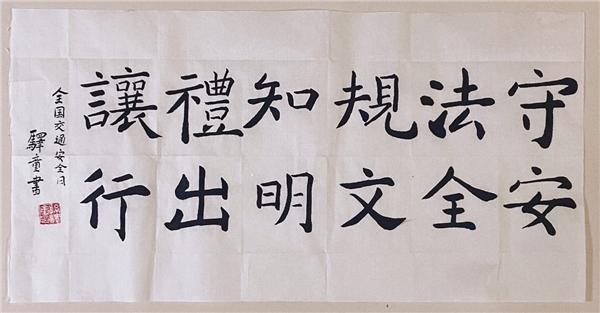 守法規知禮讓
安全文明出行
全国交通安全日
驛童書